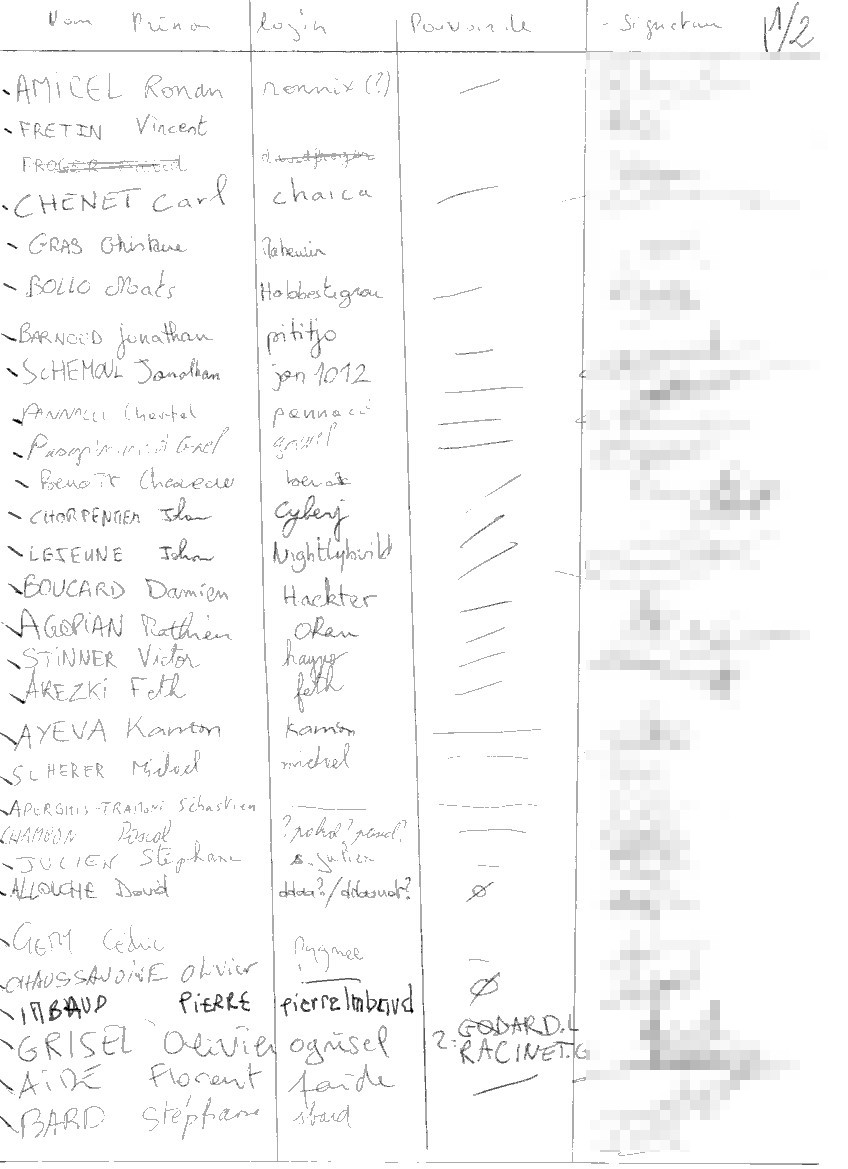 Nom Prénom login Pouvoir de Signature 1/2
AMICEL Ronan nonnix (?)
FRETIN Vincent
FROGER
CHENET Carl chaica
GRAS Ghislaine
BOLLO Mats Hobbestigrou
BARNOUD Jonathan pititjo
SCHEMOUL Jonathan jon1012
Christel pannacé
Gael gawel
Benoît Chesneau benoit
CHARPENTIER Johan Cyberj
LEJEUNE Johan Nightlybuild
BOUCARD Damien Hackter
AGOPIAN Mathieu Okan
STINNER Victor haypo
AREZKI Feth feth
AYEVA Kamon kamon
SCHERER Michael michael
APERGHIS-TRAMONI Sébastien
CHAMBON Pascal
JULIEN Stéphane s.julien
ALLOUCHE David
GEM Cédric Pygmee
CHAUSSANDINE Olivier
IMBAUD PIERRE pierreImbaud
GRISEL Olivier ogrisel 2: GODARD.L
RACINET.G
AIDE Florent faide
BARD Stéphane sbard